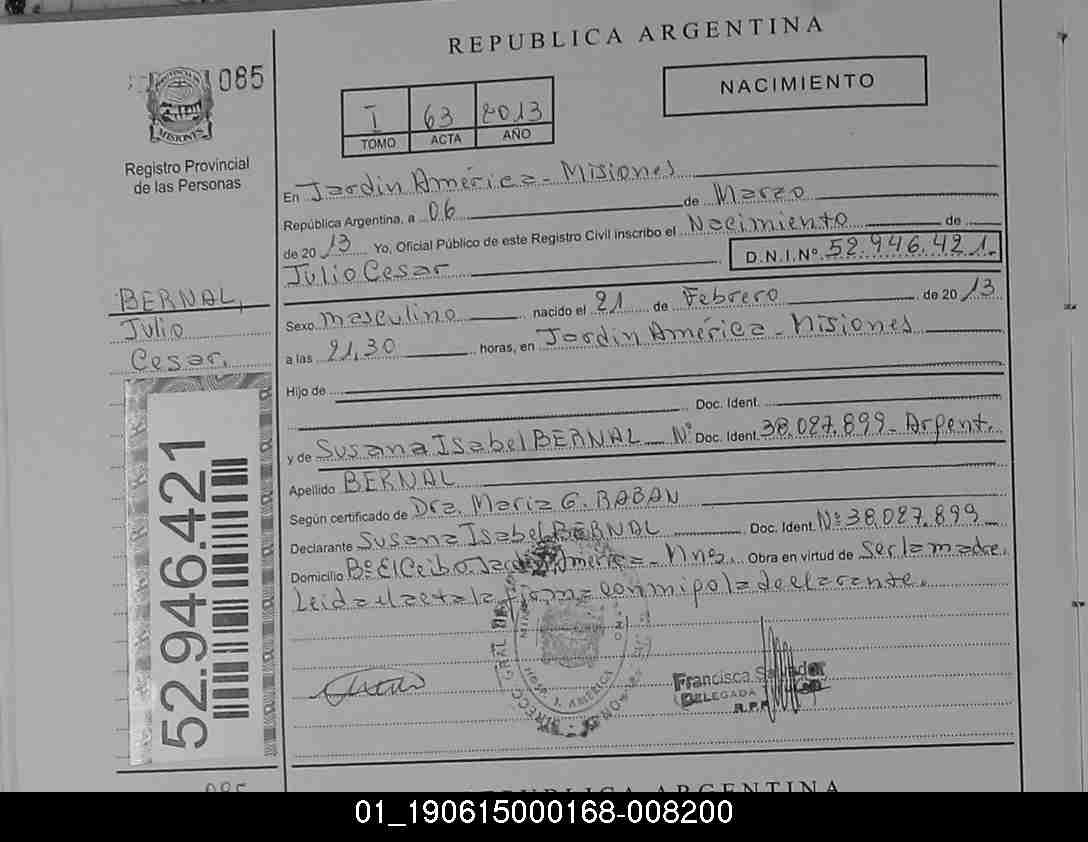 REPUBLICA ARGENTINA
085
NACIMIENTO
I 63 2013
TOMO ACTA AÑO
MISIONES
Registro Provincial
de las Personas
En Jardin América - Misiones
República Argentina, a 06 de Marzo
de 2013 Yo, Oficial Público de este Registro Civil inscribo el Nacimiento de
Julio Cesar D.N.I.Nº 52.946.421.
BERNAL,
Julio
Cesar.
Sexo masculino nacido el 21 de Febrero de 2013
a las 21,30 horas, en Jardin América - Misiones
Hijo de
Doc. Ident.
y de Susana Isabel BERNAL Nº Doc. Ident. 38.027.899 - Argent.
Apellido BERNAL
Según certificado de Dra. Maria G. BABAN
Declarante Susana Isabel BERNAL Doc. Ident. Nº 38.027.899
Domicilio Bº El Ceibo. Jardin América - Mnes. Obra en virtud de ser la madre.
Leida el acta la firma conmipo la declarante.
52.946.421
HOSP. J. AMERICA
Francisca Salvador
DELEGADA
R.P.P
085
REPUBLICA ARGENTINA
01_190615000168-008200